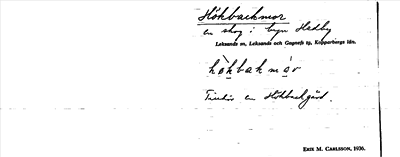 Hökbackmor
en skog i byn Hedby
Leksands sn, Leksands och Gagnefs tg, Kopparbergs län.
hökbakmor
Tillhör en Hökbackgård.
ERIK M. CARLSSON, 1936.